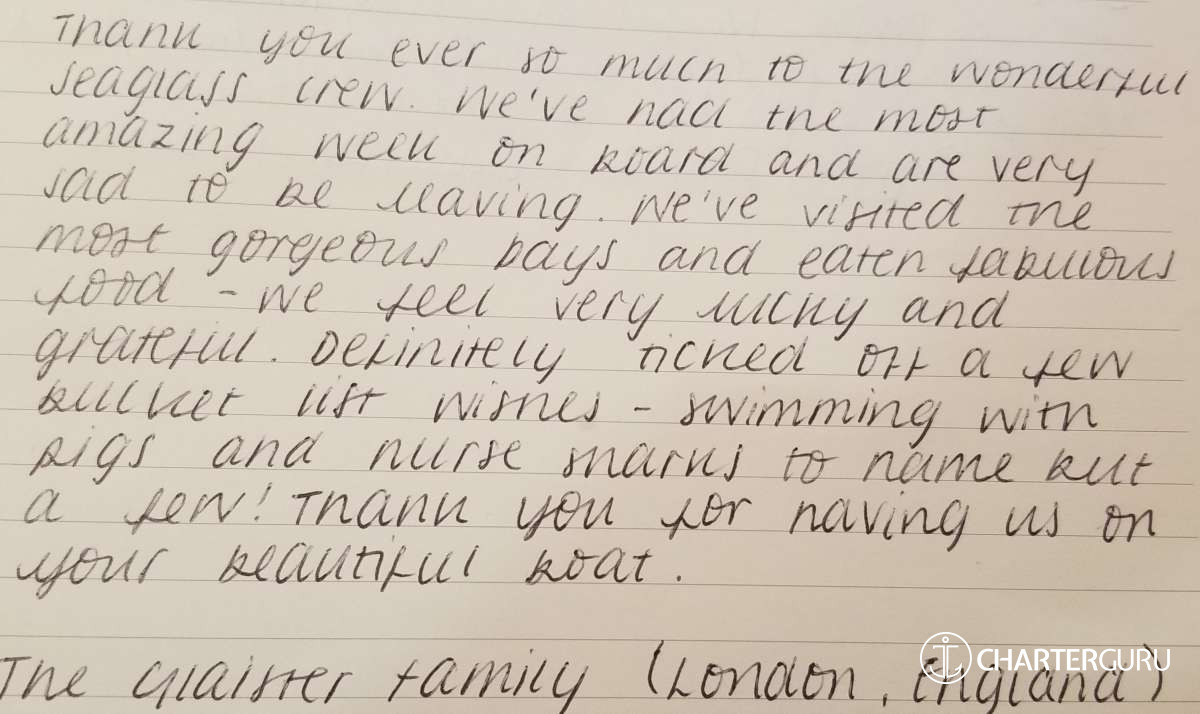 Thank you ever so much to the wonderful
seaglass crew. We've had the most
amazing week on board and are very
sad to be leaving. We've visited the
most gorgeous bays and eaten fabulous
food - we feel very lucky and
grateful. Definitely ticked off a few
bucket list wishes - swimming with
pigs and nurse sharks to name but
a few! Thank you for having us on
your beautiful boat.
The Glaister family (London, England)
CHARTERGURU